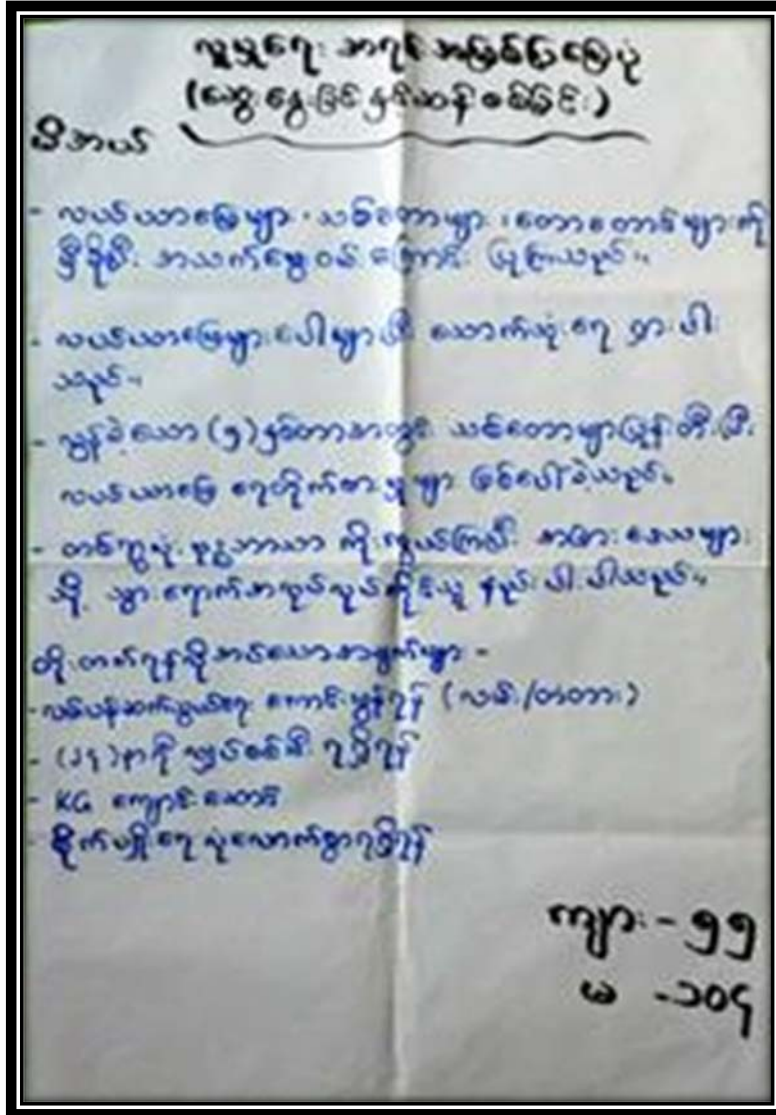 လူမှုရေး အရင်းအမြစ်ပြမြေပုံ
(ဆွေးနွေးခြင်းနှင့်ဆန်းစစ်ခြင်း)
- လယ်ယာမြေများ ၊ သစ်တောများ ၊ တောတောင်များကို
မှီခိုပြီး အသက်မွေးဝမ်းကျောင်း ပြုကြသည်။
- လယ်ယာမြေများပေါများပြီး သောက်သုံးရေ ရှားပါး
သည်။
- လွန်ခဲ့သော (၅)နှစ်တာအတွင်း သစ်တောများပြုန်းတီးပြီး
လယ်ယာမြေ ရေတိုက်စားမှုများ ဖြစ်ပေါ်ခဲ့သည်။
- ကိုးကွယ်ကြပြီး အခြားဒေသများ
သို့ သွားရောက်အလုပ်လုပ်ကိုင်သူ နည်းပါးပါသည်။
တိုးတက်ရန်လိုအပ်သောအချက်များ -
- လမ်းပန်းဆက်သွယ်ရေး ကောင်းမွန်ရန် (လမ်း/တံတား)
- (၂၄)နာရီလျှပ်စစ်မီး ရရှိရန်
- KG ကျောင်းဆောင်
- စိုက်ပျိုးရေလုံလောက်စွာရရှိရန်
ကျား - ၅၅
မ - ၁၀၄